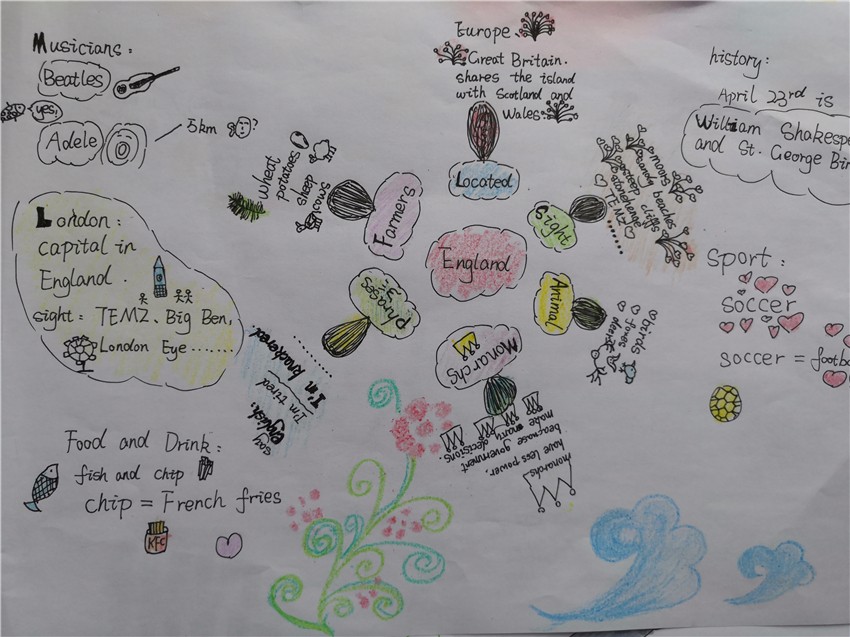 Musicians:
Beatles
yes!
Adele
5km
?
London:
capital in
England.
sight: TEMZ、Big Ben,
London Eye.......
Food and Drink:
fish and chip
chip = French fries
KFC
Europe
Great Britain.
shares the island
with Scotland and
Wales.
Located
England
Farmers
wheat
potatoes
sheep
cows
Phrases
say
english:
I'm tired
I'm knackered.
Monarchs
monarchs
have less power.
because government
make many decisions.
Animal
birds
foxes
deer
Sight
moors
sandy beaches
steep cliffs
stonehenge
TEMZ
history:
April 23rd is
William Shakespe
and St. George Bir
Sport:
soccer
soccer = footba